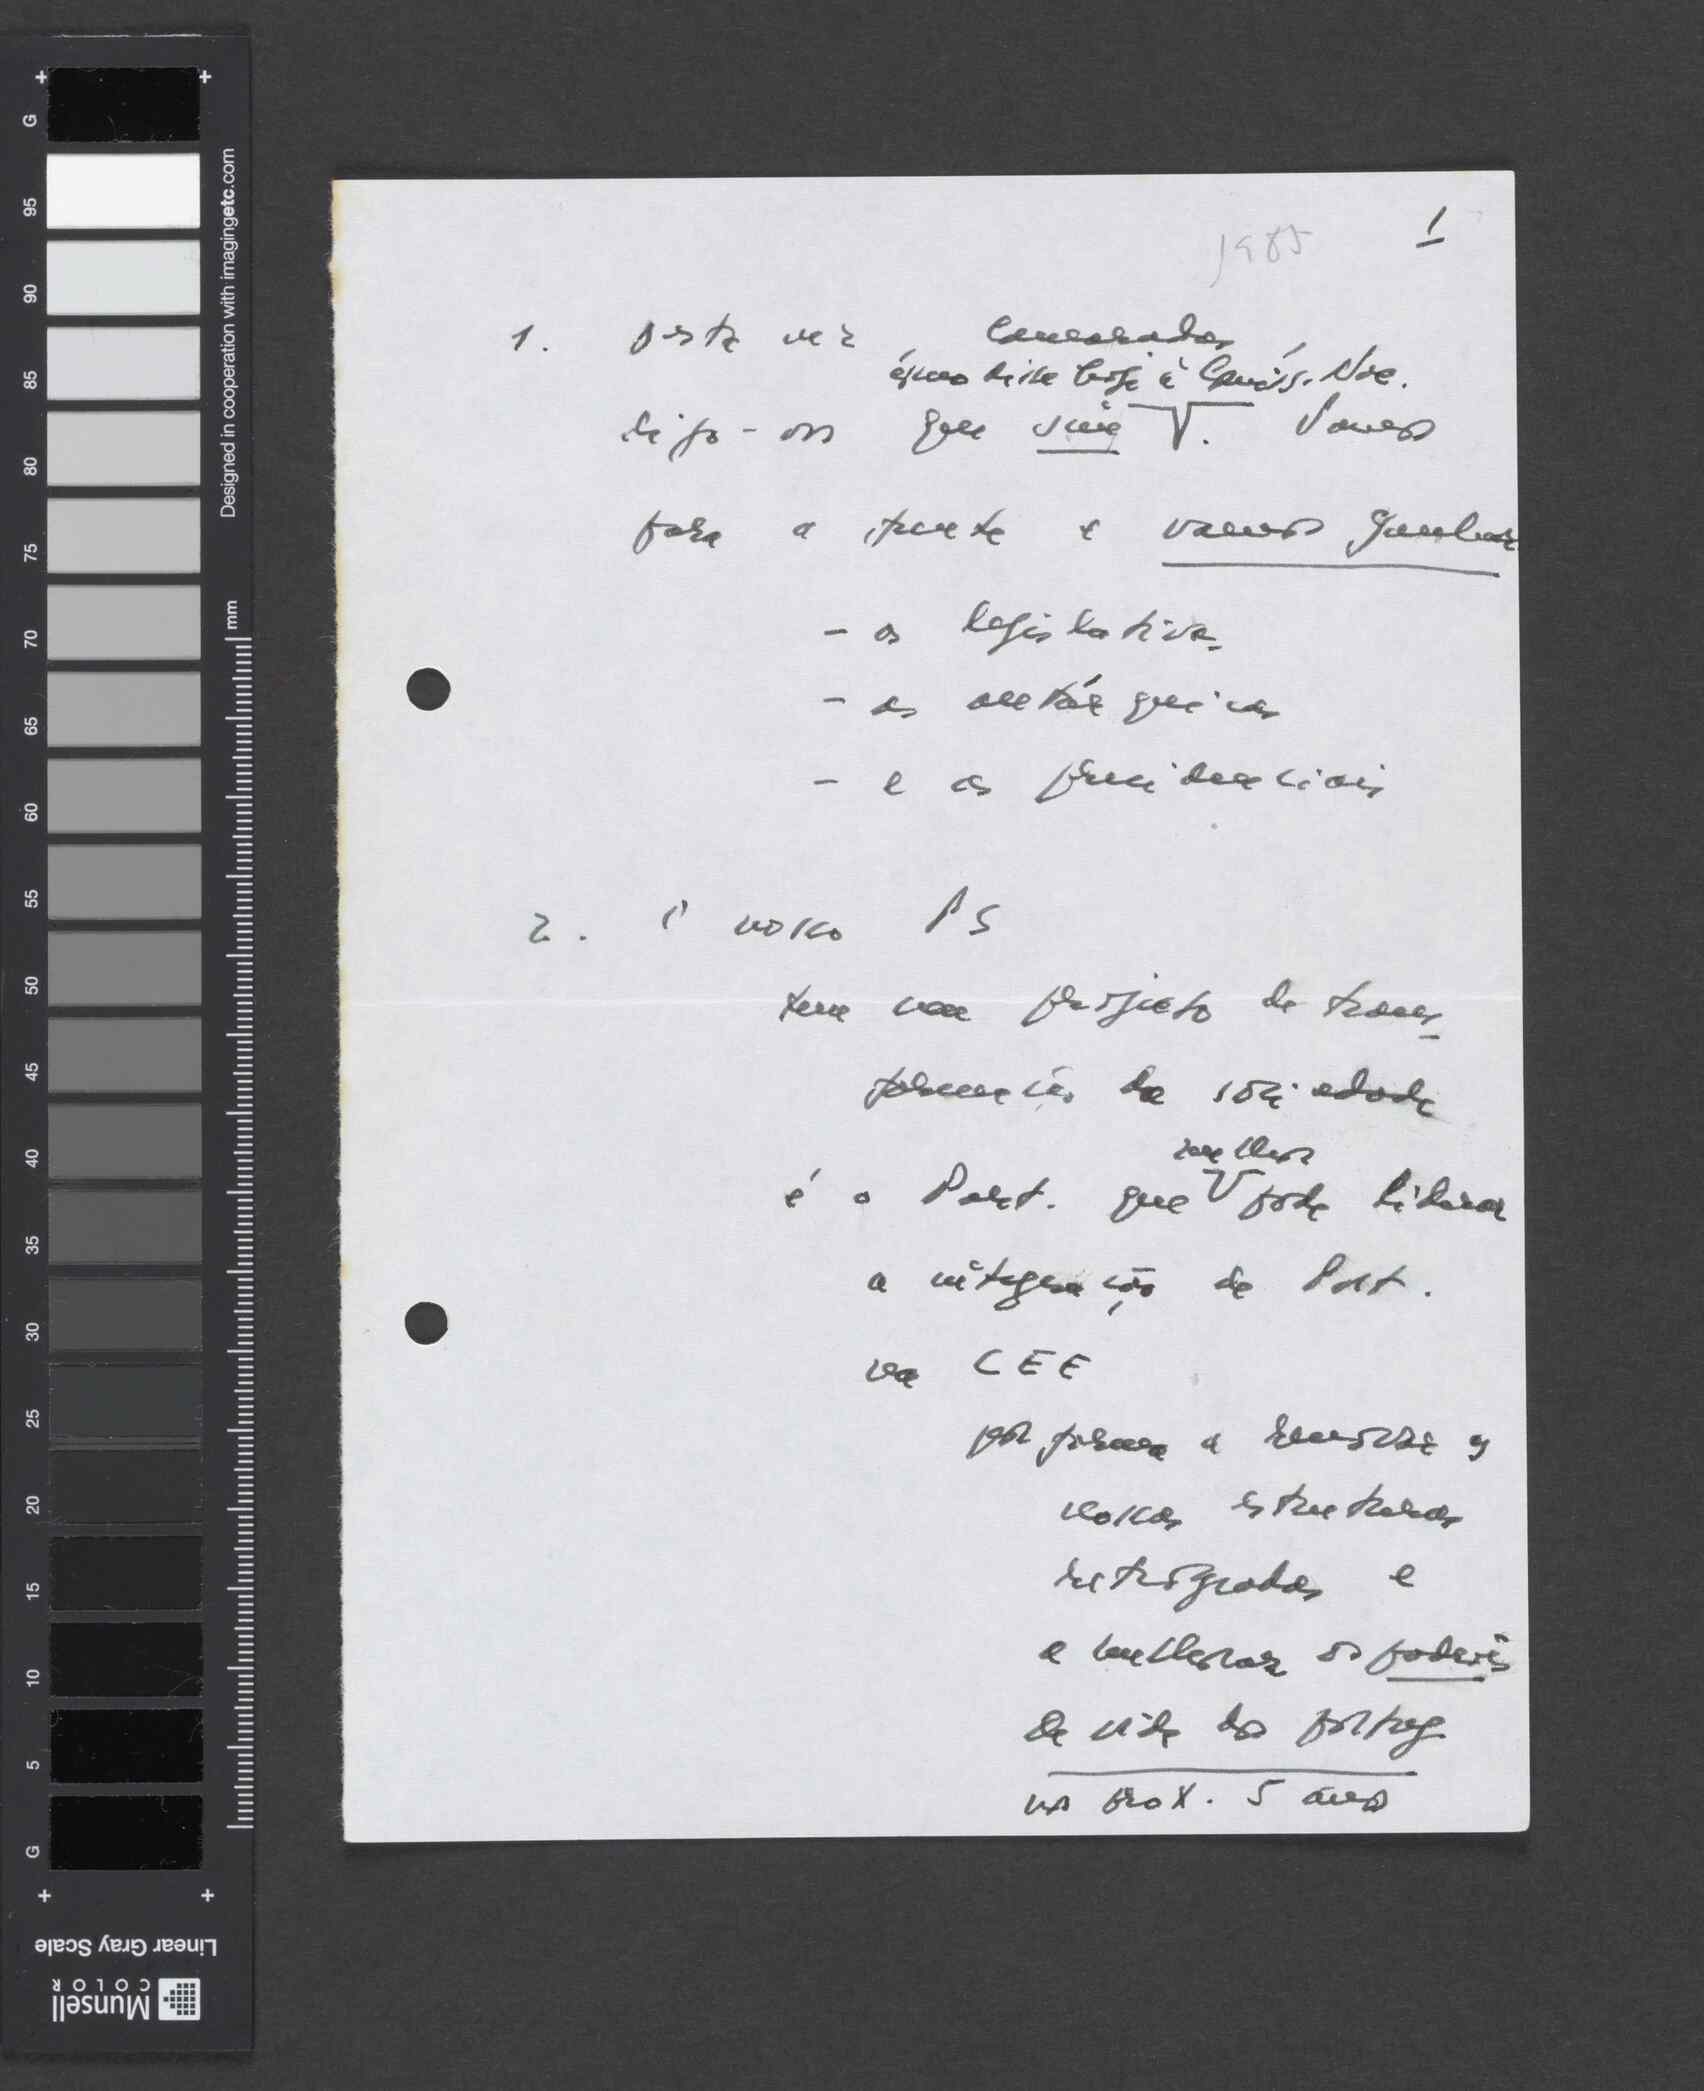 G
95
90
85
80
75
70
65
60
55
50
45
40
35
30
25
20
15
10
5
G
Designed in cooperation with imagingetc.com
mm
Linear Gray Scale
Munsell
COLOR
1985
1
1. Desta vez, camaradas,
como disse hoje à Comiss. Nac.
digo-vos que sim V. Vamos
para a frente e vamos ganhar
- as legislativas
- as autárquicas
- e as presidenciais
2. O nosso PS
tem um projecto de trans
formação da sociedade
melhor
é o Part. que V pode liderar
a integração de Port.
na CEE
por forma a remover as
nossas estruturas
retrógradas e
a melhorar os padrões
de vida dos portug
nos prox. 5 anos